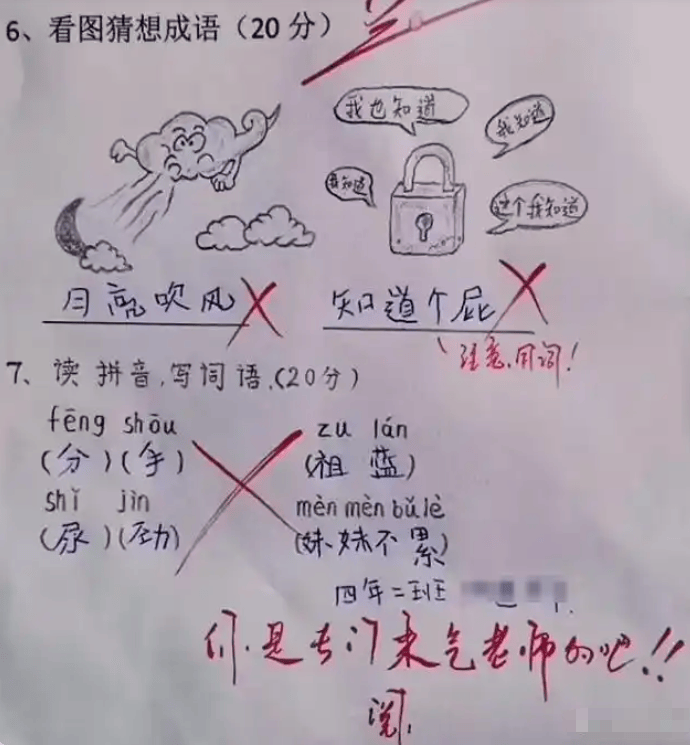 6、看图猜想成语（20分）
我也知道
我知道
我知道
这个我知道
月亮吹风
知道个屁
注意用词！
7、读拼音，写词语，（20分）
fēng shōu
zu lán
(分)(手)
(祖蓝)
shǐ jìn
mèn mèn bǔ lè
(尿)(劲)
(妹妹不累)
四年二班
你是专门来气老师的吧！！
阅